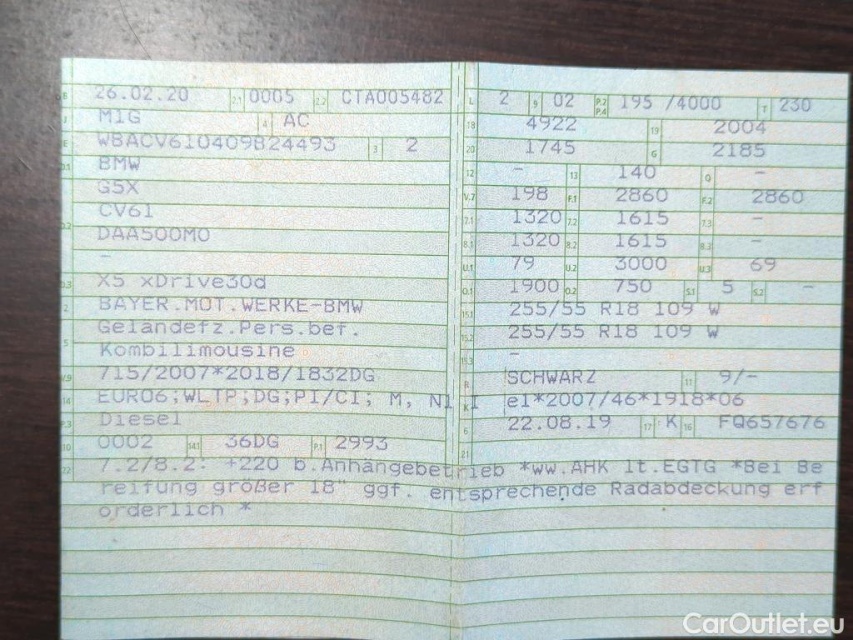 B 26.02.20 2.1 0005 2.2 CTA005482 L 2 9 02 P.2 P.4 195 /4000 T 230
J M1G 4 AC 18 4922 19 2004
E WBACV610409B24493 3 2 20 1745 G 2185
D.1 BMW 12 - 13 140 Q -
G5X V.7 198 F.1 2860 F.2 2860
D.2 CV61 7.1 1320 7.2 1615 7.3 -
DAA500M0 8.1 1320 8.2 1615 8.3 -
- U.1 79 U.2 3000 U.3 69
D.3 X5 xDrive30d O.1 1900 O.2 750 S.1 5 S.2 -
2 BAYER.MOT.WERKE-BMW 15.1 255/55 R18 109 W
5 Geländefz.Pers.bef. 15.2 255/55 R18 109 W
Kombilimousine 15.3 -
V.9 715/2007*2018/1832DG R SCHWARZ 11 9/-
14 EURO6;WLTP;DG;PI/CI; M, N1 I K e1*2007/46*1918*06
P.3 Diesel 6 22.08.19 17 K 16 FQ657676
10 0002 14.1 36DG P.1 2993 21
22 7.2/8.2: +220 b.Anhängebetrieb *ww.AHK lt.EGTG *Bei Be
reifung größer 18" ggf. entsprechende Radabdeckung erf
orderlich *
CarOutlet.eu